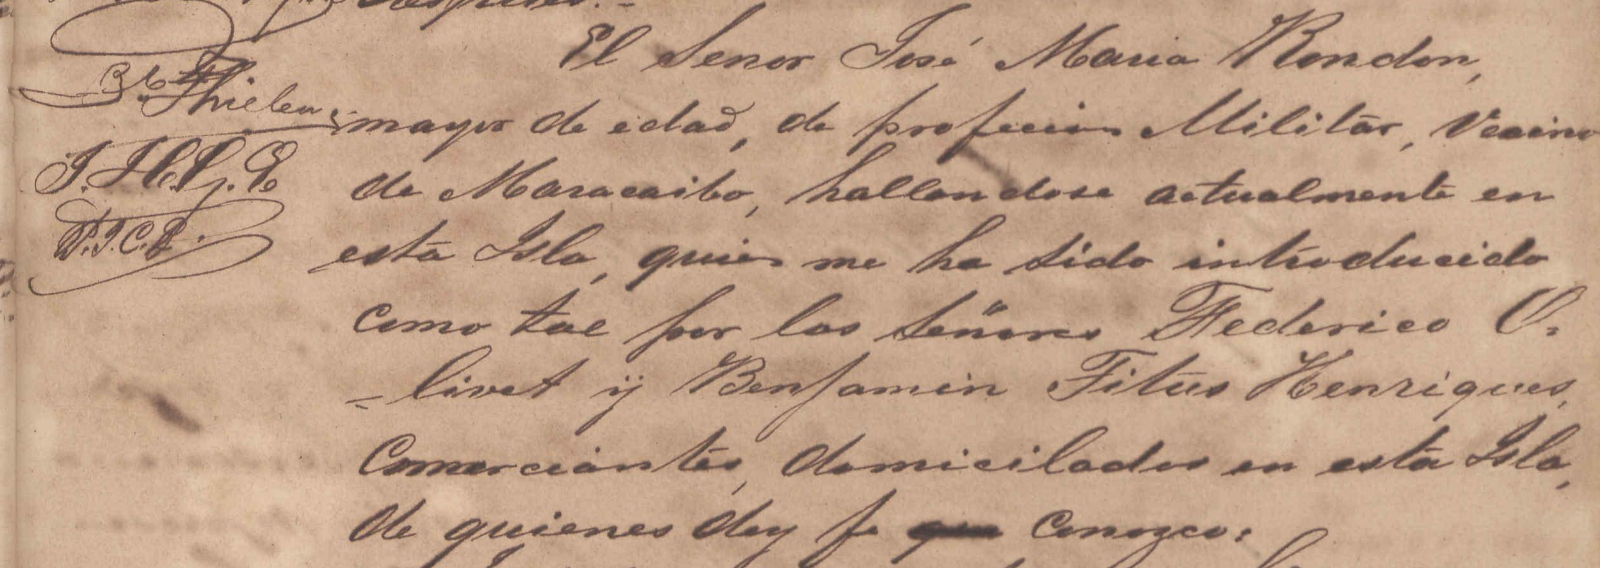 El Senor José Maria Rondon,
Thielen
mayor de edad, de profecion Militar, Vecino
de Maracaibo, hallandose actualmente en
esta Isla, quien me ha sido introducido
como tal por los señores Federico O-
-livet y Benjamin Titus Henriques,
Comerciantes, domicilados en esta Isla,
de quienes doy fe conozco: